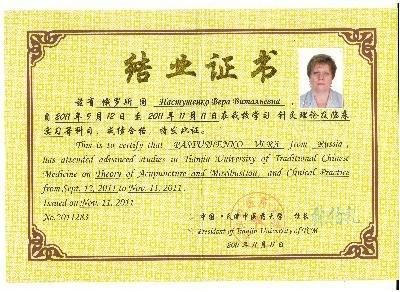 结业证书
兹有 俄罗斯 国 Пастушенко Вера Витальевна ,
自 2011 年 9 月 12 日 至 2011 年 11 月 11 日在我校学习 针灸理论及临床
实习等科目, 成绩合格, 特发此证。
This is to certify that PASTUSHENKO VERA from Russia ,
has attended advanced studies in Tianjin University of Traditional Chinese
Medicine on Theory of Acupuncture and Moxibustion, and Clinical Practice
from Sept. 12, 2011 to Nov. 11, 2011
Issued on Nov. 11, 2011
No.2011283
中国·天津中医药大学 校长
President of Tianjin University of TCM
2011 年 11 月 11 日